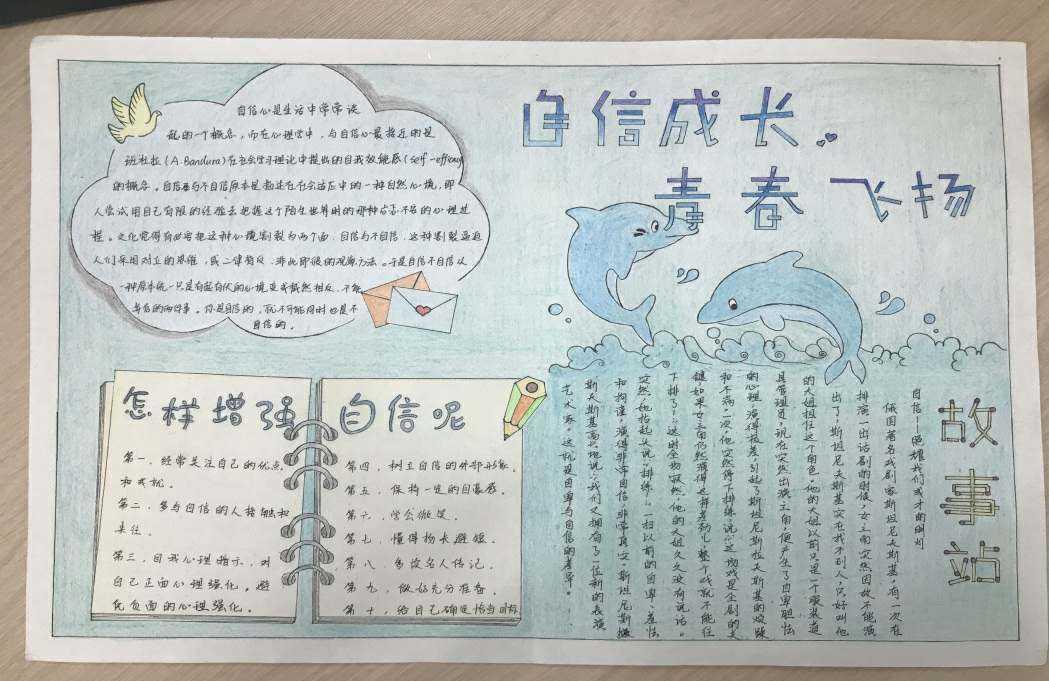 自信成长
青春飞扬
自信心是生活中常常谈
起的一个概念，而在心理学中，与自信心最接近的是
班杜拉（A.Bandura）在社会学习理论中提出的自我效能感（self-efficacy
的概念。自信与不自信原本是描述在社会适应中的一种自然心境，即
人尝试用自己有限的经验去把握这个陌生世界时的那种忐忑不安的心理过
程。文化觉得有必要把这种心境割裂为两个面，自信与不自信，这种割裂逼迫
人们采用对立的思维，或二律背反，非此即彼的观察方法。于是自信不自信从
一种原本统一只是有起有伏的心境变成截然相反，不能
参与的两件事。你是自信的，就不可能同时也是不
自信的。
怎样增强 自信呢
第一，经常关注自己的优点
和成就。
第二，多与自信的人接触和
来往。
第三，自我心理暗示，对
自己正面心理强化，避
免负面的心理强化。
第四，树立自信的外部形象。
第五，保持一定的自豪感。
第六，学会微笑。
第七，懂得扬长避短。
第八，多读名人传记。
第九，做好充分准备。
第十，给自己确定恰当目标
故事站
自信——照耀我们成才的明灯
俄国著名戏剧家斯坦尼夫斯基，有一次在
排演一出话剧的时候，女主角突然因故不能演
出了，斯坦尼夫斯基实在找不到人，只好叫他
的大姐担任这个角色。他的大姐以前只是一个服装道
具管理员，现在突然出演主角，便产生了自卑胆怯
的心理，演得极差，引起了斯坦尼斯拉夫斯基的烦躁
和不满。一次，他突然停下排练，说：“这场戏是全剧的关
键如果女主角仍然演得这样差劲儿，整个戏就不能往
下排了！”这时全场寂然，他的大姐久久没有说话。
突然，她抬起头说：“排练！”一扫以前的自卑、羞怯
和拘谨，演得非常自信，非常真实。斯坦尼斯拉
斯夫斯基高兴地说：“我们又拥有了一位新的表演
艺术家。”这就是自卑与自信的差异。